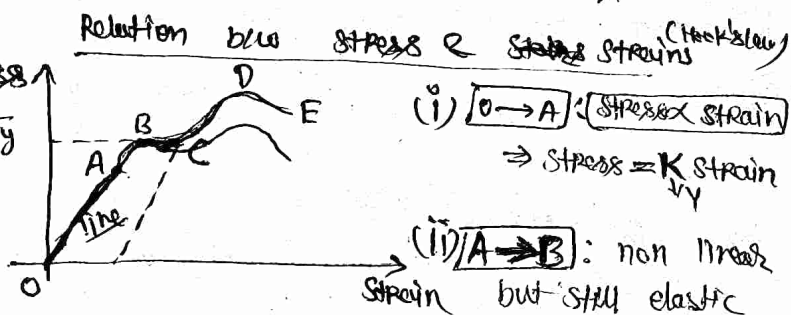 Relation b/w stress & strains (Hook's law)
ss
y
D
B
E
A
C
line
O
Strain
(i) O → A : Stress ∝ Strain
⇒ Stress = K Strain
↓Y
(ii) A → B : non linear
but still elastic